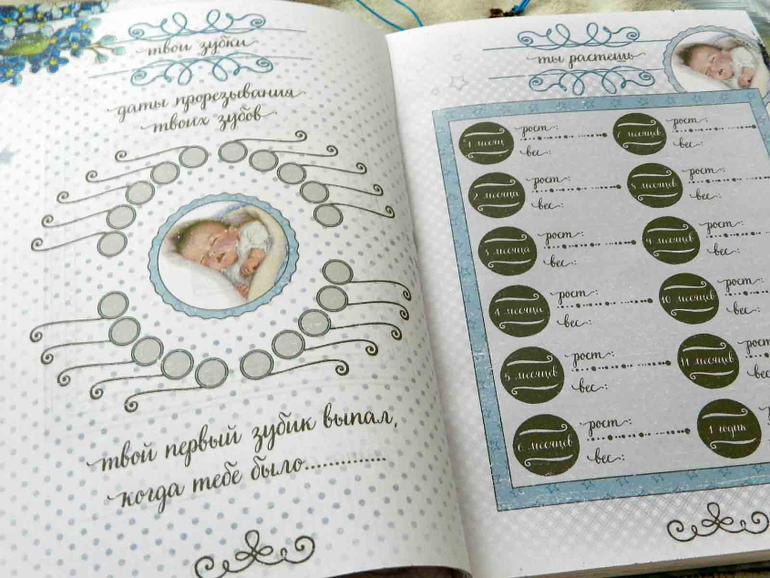 твои зубки
даты прорезывания
твоих зубов
твой первый зубик выпал,
когда тебе было.............
ты растешь
1 месяц
рост:
вес:
2 месяца
рост:
вес:
3 месяца
рост:
вес:
4 месяца
рост:
вес:
5 месяцев
рост:
вес:
6 месяцев
рост:
вес:
7 месяцев
рост:
вес:
8 месяцев
рост:
вес:
9 месяцев
рост:
вес:
10 месяцев
рост:
вес:
11 месяцев
рост:
вес:
1 годик